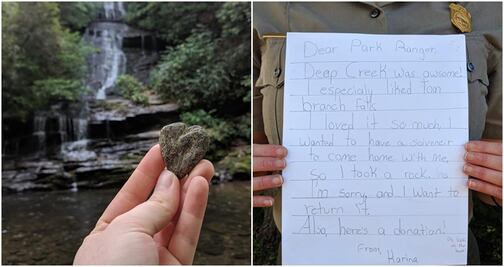 Dear Park Ranger,
Deep Creek was awsome!
I especialy liked Tom
branch falls.
I loved it so much, I
wanted to have a souvenir
to come home with me,
so I took a rock.
I'm sorry, and I want to
return it.
Also, here's a donation!
From,
Karina